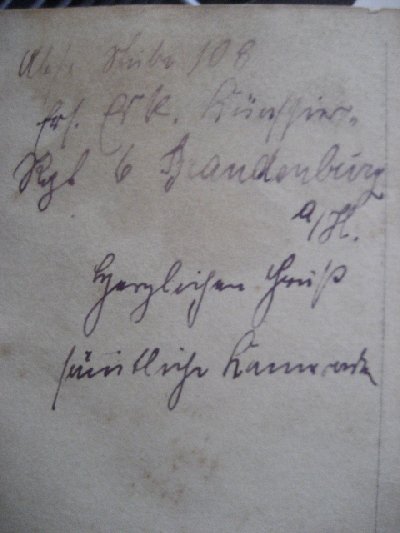 Abs. Stube 108
Ers. Esk. Kürassier-
Rgt 6 Brandenburg
a/H.
Herzlichen Gruß
sämtliche Kameraden